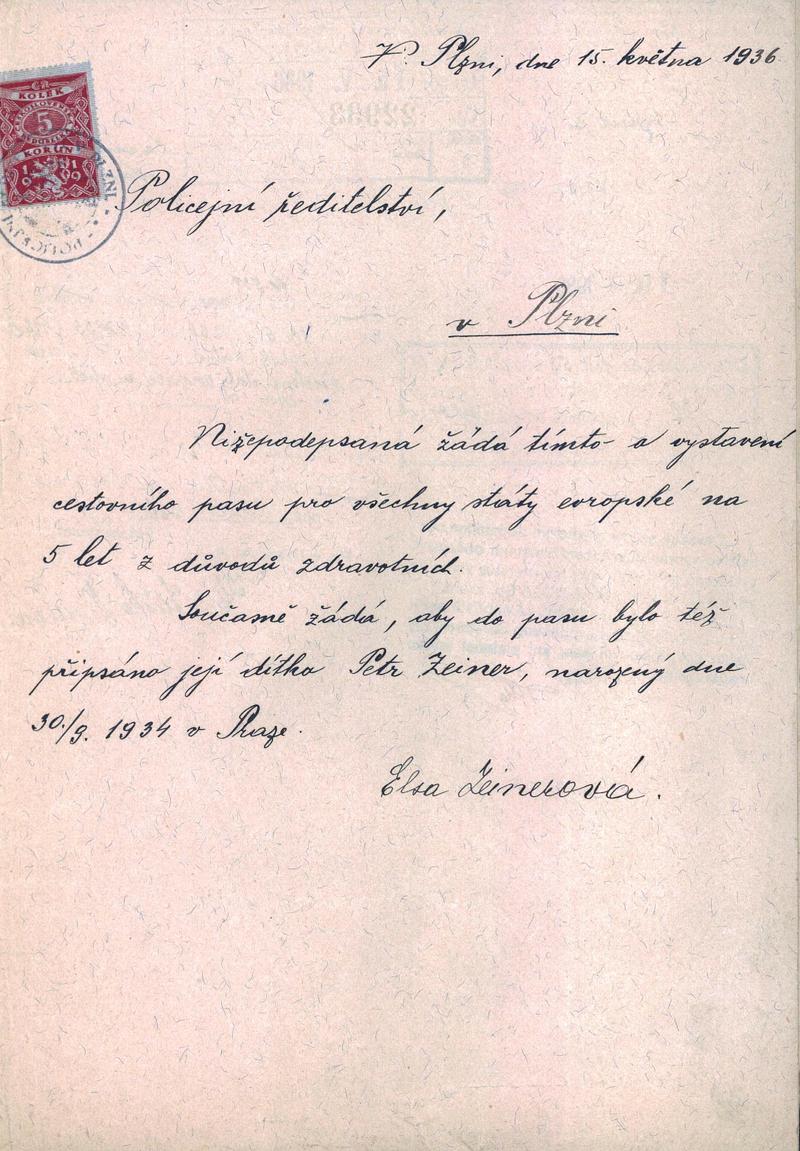 V Plzni, dne 15. května 1936
KOLEK
5
KORUN
Policejní ředitelství,
v Plzni
Nížepodepsaná žádá tímto o vystavení
cestovního pasu pro všechny státy evropské na
5 let z důvodů zdravotních.
Současně žádá, aby do pasu bylo též
připsáno její dítko Petr Zeiner, narozený dne
30./9. 1934 v Praze.
Elsa Zeinerová.